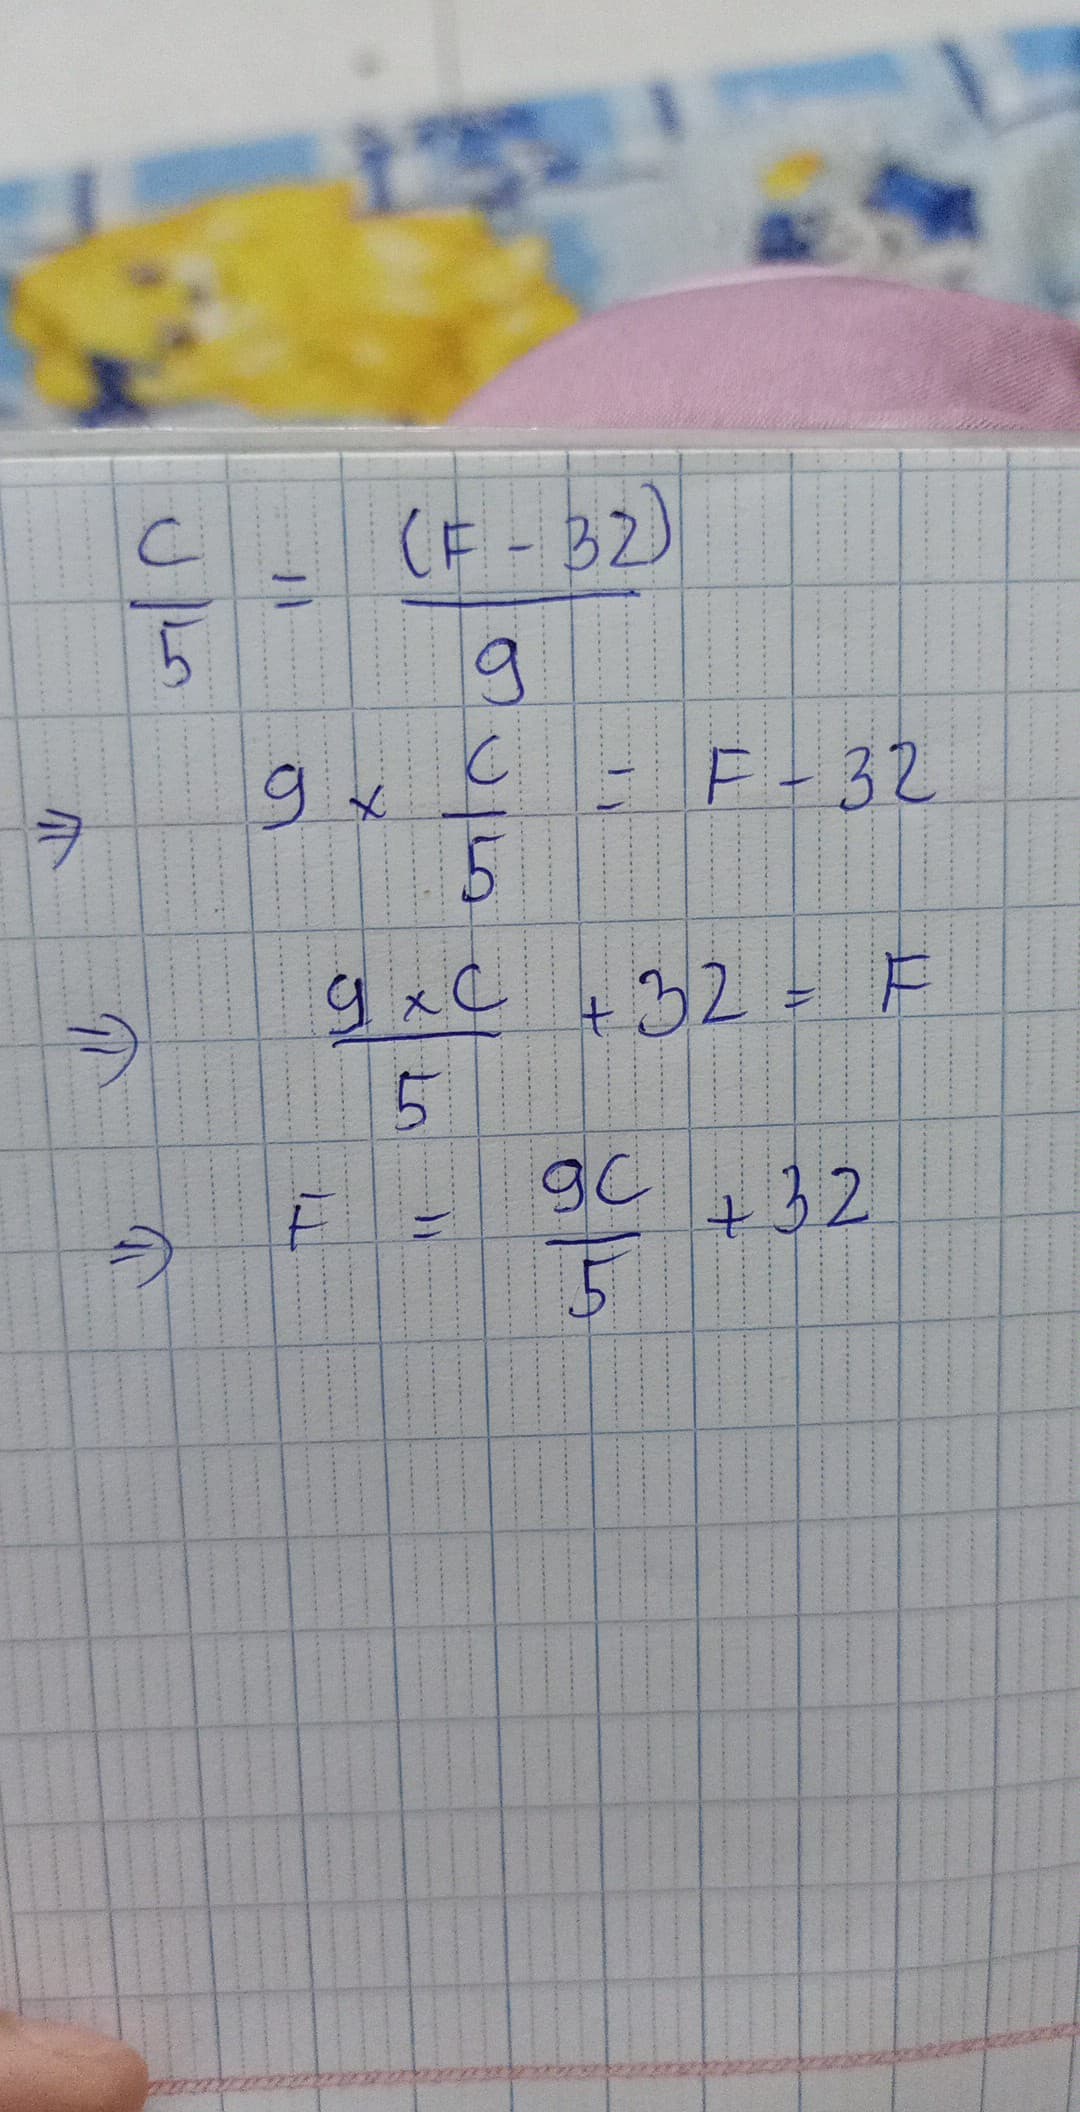 C/5 = (F - 32)/9
⇒ 9 × C/5 = F - 32
⇒ 9 × C/5 + 32 = F
⇒ F = 9C/5 + 32